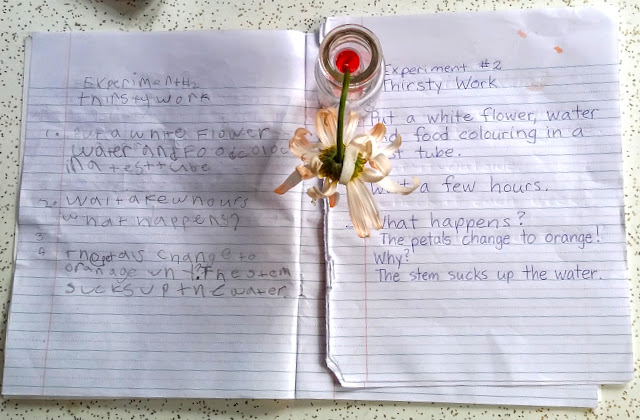 Experiment#2
thirstywork
1. put a white Flower
water and Foodcolo
in a testtube
2. wait afewhours
what happens?
3
4 the petals change to
oranage why? The stem
sucks up the water.
Experiment #2
Thirsty Work
Put a white flower, water
food colouring in a
tube.
a few hours.
What happens?
The petals change to orange!
Why?
The stem sucks up the water.